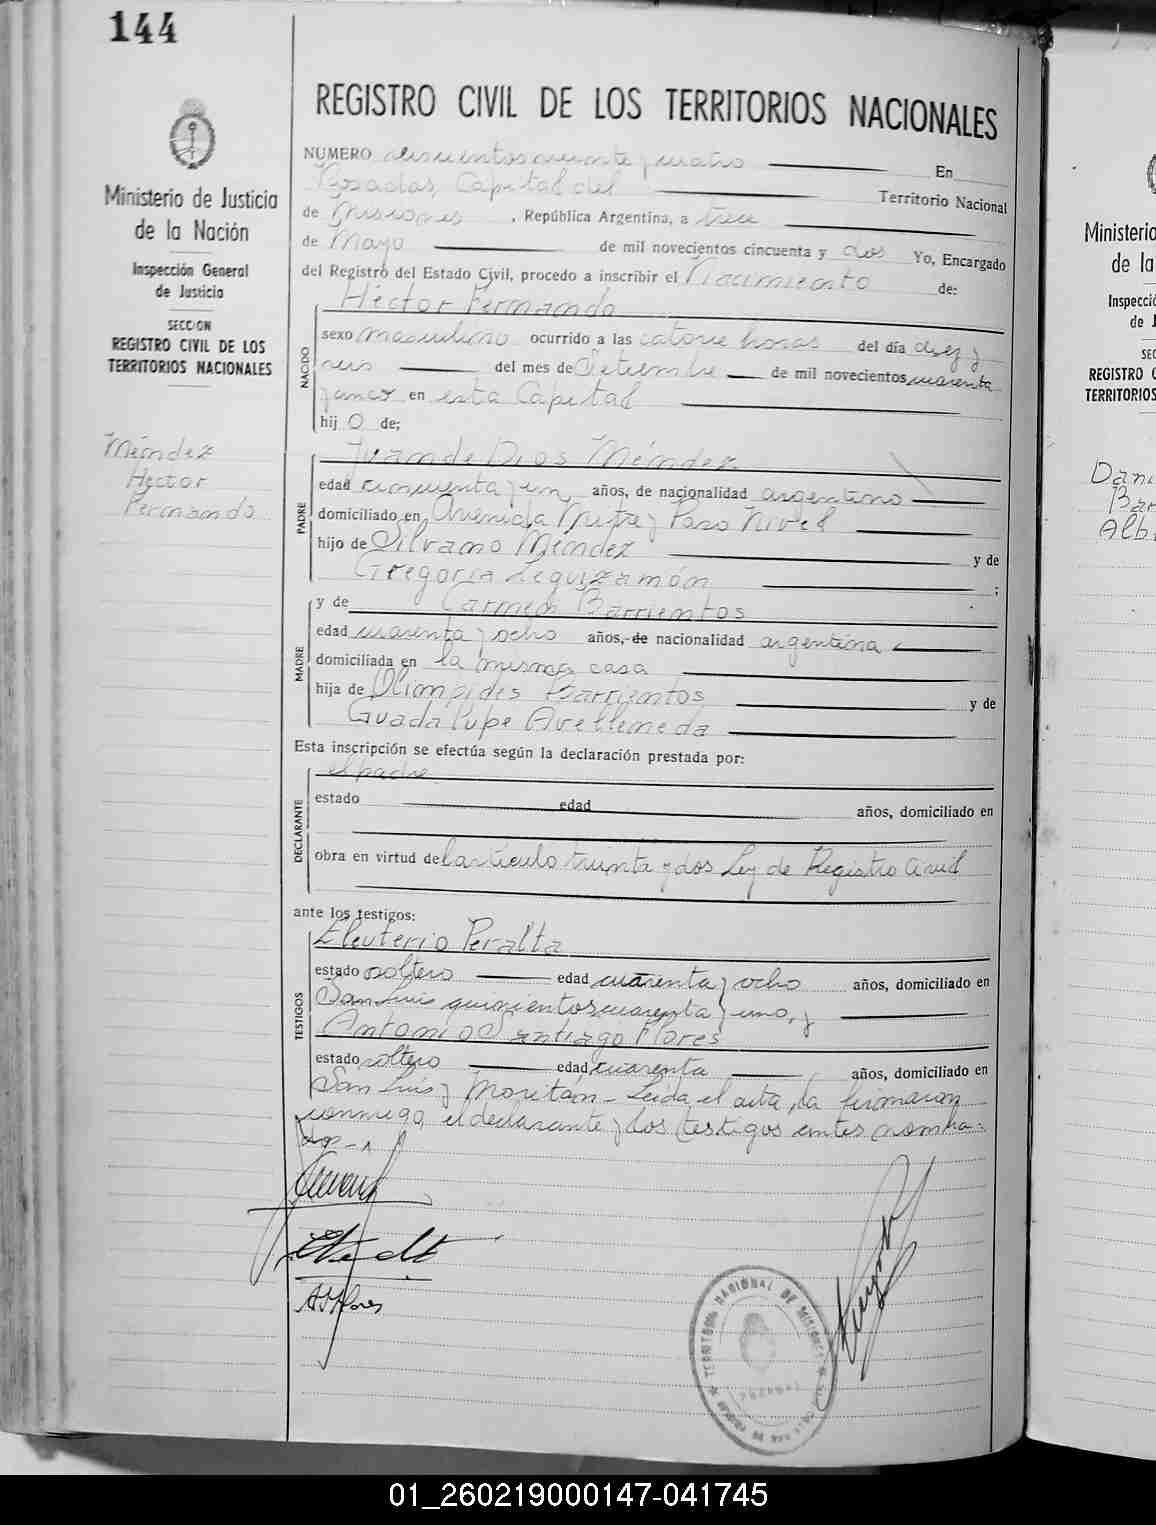 144
Ministerio de Justicia
de la Nación
Inspección General
de Justicia
SECCION
REGISTRO CIVIL DE LOS
TERRITORIOS NACIONALES
Méndez
Hector
Fernando
REGISTRO CIVIL DE LOS TERRITORIOS NACIONALES
NUMERO doscientos cuarenta y cuatro En
Posadas, Capital del Territorio Nacional
de Misiones, República Argentina, a trece
de Mayo de mil novecientos cincuenta y dos Yo, Encargado
del Registro del Estado Civil, procedo a inscribir el Nacimiento de:
Héctor Fernando
NACIDO
sexo masculino ocurrido a las catorce horas del día diez y
seis del mes de Setiembre de mil novecientos cuarenta
y cinco en esta Capital
hij o de;
Juan de Dios Méndez
PADRE
edad cincuenta y un años, de nacionalidad argentino
domiciliado en Avenida Mitre y Paso Nivel
hijo de Silvano Méndez y de
Gregoria Leguizamón ;
y de Carmen Barrientos
MADRE
edad cuarenta y ocho años, de nacionalidad argentina
domiciliada en la misma casa
hija de Olimpides Barrientos y de
Guadalupe Avellaneda
Esta inscripción se efectúa según la declaración prestada por:
el padre
DECLARANTE
estado edad años, domiciliado en
obra en virtud del artículo treinta y dos Ley de Registro Civil
ante los testigos:
Eleuterio Peralta
TESTIGOS
estado soltero edad cuarenta y ocho años, domiciliado en
San Luis quinientos cuarenta y uno, y
Antonio Santiago Flores
estado soltero edad cuarenta años, domiciliado en
San Luis y Moritán - Leida el acta, la firmaron
conmigo, el declarante y los testigos antes nombra-
dos -
A S Flores
TERRITORIO NACIONAL DE MISIONES
POSADAS
Ministerio
de la
Inspecció
de J
SEC
REGISTRO C
TERRITORIOS
Dani
Bar
Alb
01_260219000147-041745